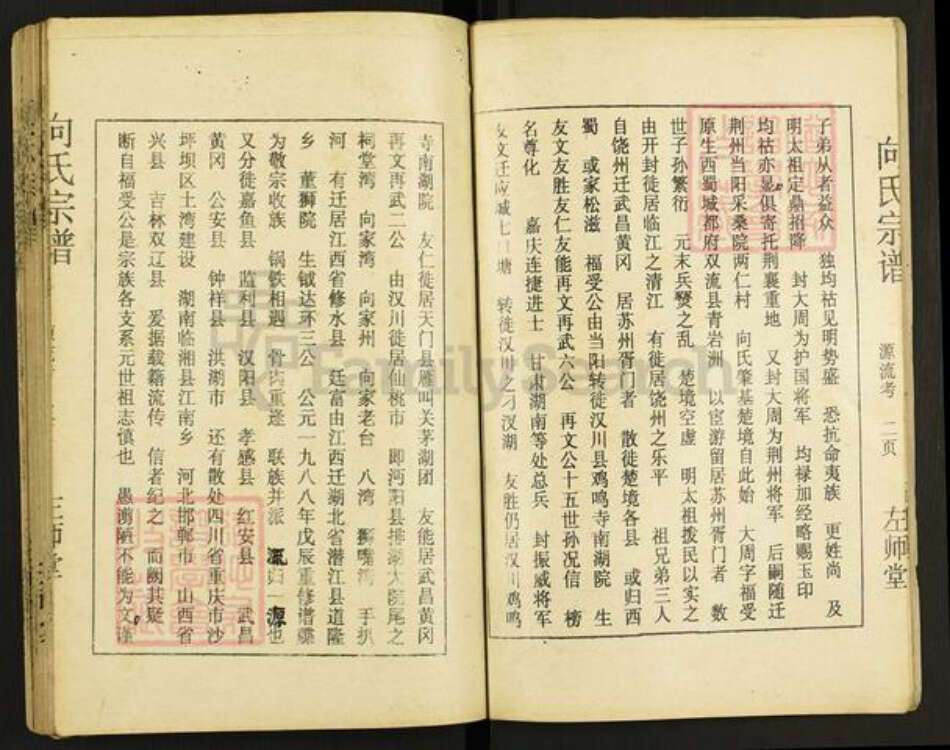 向氏宗谱
源流考
二页
左师堂
子弟从者益众 独均祜见明势盛 恐抗命夷族 更姓尚 及
明太祖定鼎招降 封大周为护国将军 均禄加经略赐玉印
均祜亦显俱寄托荆襄重地 又封大周为荆州将军 后嗣随迁
荆州当阳采桑院两仁村 向氏肇基楚境自此始 大周字福受
原生西蜀城都府双流县青岩洲 以宦游留居苏州胥门者 数
世子孙繁衍 元末兵燹之乱 楚境空虚 明太祖拨民以实之
由开封徒居临江之清江 有徙居饶州之乐平 祖兄弟三人
自饶州迁武昌黄冈 居苏州胥门者 散徒楚境各县 或归西
蜀 或家松滋 福受公由当阳转徒汉川县鸡鸣寺南湖院 生
友文友胜友仁友能再文再武六公 再文公十五世孙况信 榜
名尊化 嘉庆连捷进士 甘肃湖南等处总兵 封振威将军
友文迁应城七口塘 转徙汉川之刁汊湖 友胜仍居汉川鸡鸣
寺南湖院 友仁徒居天门县雁叫关茅湖团 友能居武昌黄冈
再文再武二公 由汉川徒居仙桃市 即沔阳县排湖大院尾之
祠堂湾 向家湾 向家州 向家老台 八湾 狮嘴湾 手扒
河 有迁居江西省修水县 廷富由江西迁湖北省潜江县道隆
乡 董狮院 生钺达环三公 公元一九八八年戊辰重修谱牒
为敬宗收族 锅铁相遇 骨肉重逢 联族并派 派归一源也
又分徒嘉鱼县 监利县 汉阳县 孝感县 红安县 武昌
黄冈 公安县 钟祥县 洪湖市 还有散处四川省重庆市沙
坪坝区土湾建设 湖南临湘县江南乡 河北邯郸市 山西省
兴县 吉林双辽县 爰据载籍流传 信者纪之 而阙其疑
断自福受公是宗族各支系元世祖志慎也 愚谫陋不能为文谨
向氏宗谱
FamilySearch